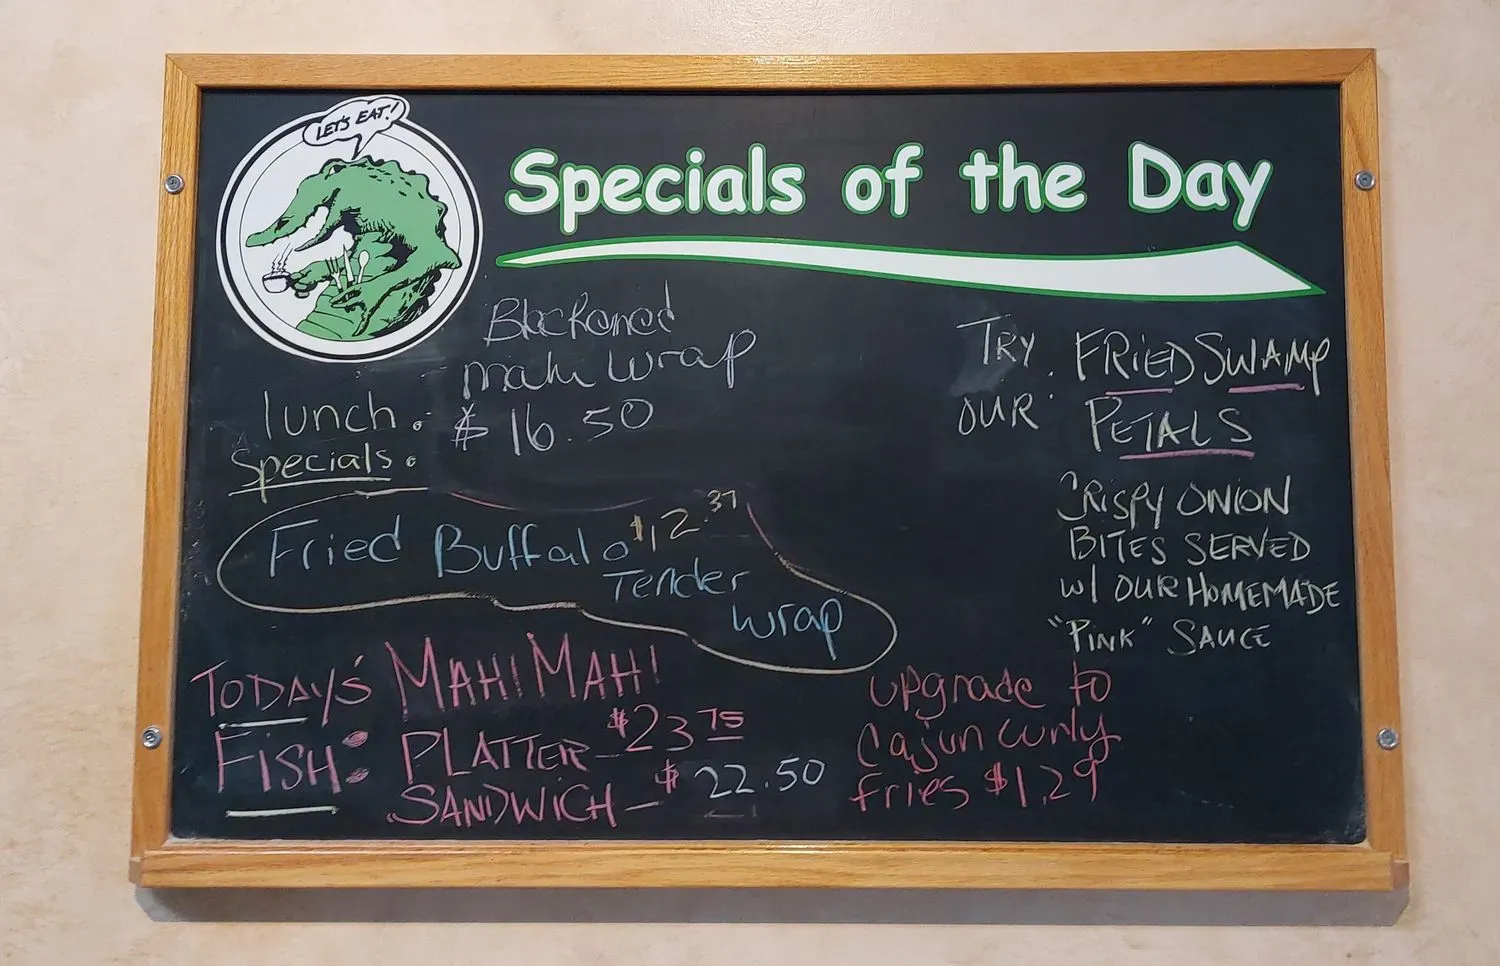 LET'S EAT!
Specials of the Day
Blackened
mahi wrap
$16.50
lunch :
Specials:
Fried Buffalo $12.37
Tender
wrap
TODAY'S
FISH:
MAHI MAHI
PLATTER - $23 75
SANDWICH - $22.50
TRY
OUR:
FRIED SWAMP
PETALS
CRISPY ONION
BITES SERVED
w/ OUR HOMEMADE
"PINK" SAUCE
upgrade to
Cajun curly
fries $1.29